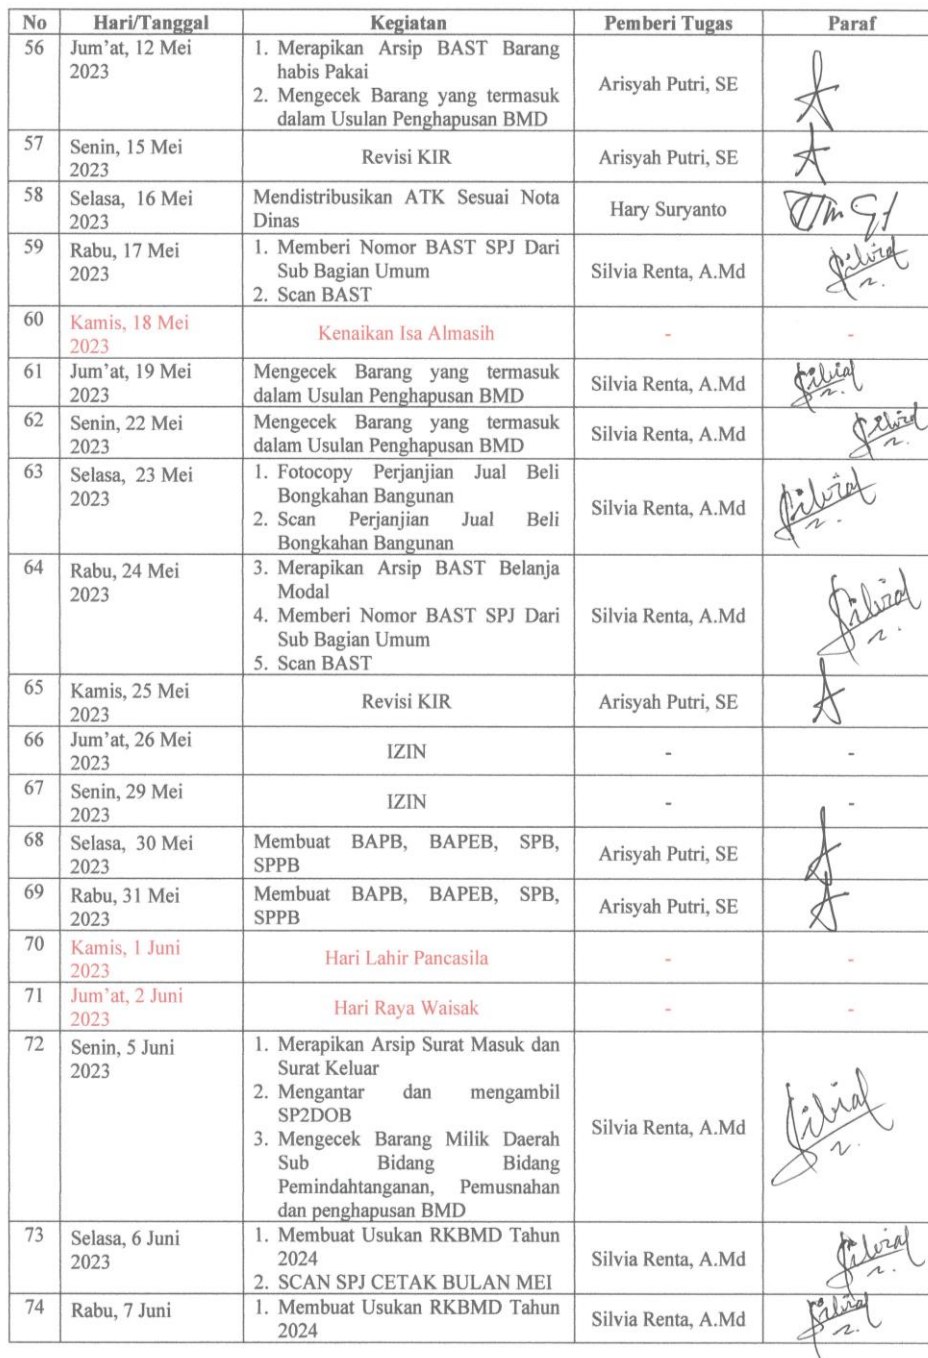 No Hari/Tanggal Kegiatan Pemberi Tugas Paraf
56 Jum'at, 12 Mei 2023
1. Merapikan Arsip BAST Barang
habis Pakai
2. Mengecek Barang yang termasuk
dalam Usulan Penghapusan BMD
Arisyah Putri, SE
57 Senin, 15 Mei
2023
Revisi KIR
Arisyah Putri, SE
58 Selasa, 16 Mei
2023
Mendistribusikan ATK Sesuai Nota
Dinas
Hary Suryanto
59 Rabu, 17 Mei
2023
1. Memberi Nomor BAST SPJ Dari
Sub Bagian Umum
2. Scan BAST
Silvia Renta, A.Md
Silvia
60 Kamis, 18 Mei
2023
Kenaikan Isa Almasih
-
-
61 Jum'at, 19 Mei
2023
Mengecek Barang yang termasuk
dalam Usulan Penghapusan BMD
Silvia Renta, A.Md
Silvia
62 Senin, 22 Mei
2023
Mengecek Barang yang termasuk
dalam Usulan Penghapusan BMD
Silvia Renta, A.Md
Silvia
63 Selasa, 23 Mei
2023
1. Fotocopy Perjanjian Jual Beli
Bongkahan Bangunan
2. Scan Perjanjian Jual Beli
Bongkahan Bangunan
Silvia Renta, A.Md
Silvia
64 Rabu, 24 Mei
2023
3. Merapikan Arsip BAST Belanja
Modal
4. Memberi Nomor BAST SPJ Dari
Sub Bagian Umum
5. Scan BAST
Silvia Renta, A.Md
Silvia
65 Kamis, 25 Mei
2023
Revisi KIR
Arisyah Putri, SE
66 Jum'at, 26 Mei
2023
IZIN
-
-
67 Senin, 29 Mei
2023
IZIN
-
-
68 Selasa, 30 Mei
2023
Membuat BAPB, BAPEB, SPB,
SPPB
Arisyah Putri, SE
69 Rabu, 31 Mei
2023
Membuat BAPB, BAPEB, SPB,
SPPB
Arisyah Putri, SE
70 Kamis, 1 Juni
2023
Hari Lahir Pancasila
-
-
71 Jum'at, 2 Juni
2023
Hari Raya Waisak
-
-
72 Senin, 5 Juni
2023
1. Merapikan Arsip Surat Masuk dan
Surat Keluar
2. Mengantar dan mengambil
SP2DOB
3. Mengecek Barang Milik Daerah
Sub Bidang Bidang
Pemindahtanganan, Pemusnahan
dan penghapusan BMD
Silvia Renta, A.Md
Silvia
73 Selasa, 6 Juni
2023
1. Membuat Usukan RKBMD Tahun
2024
2. SCAN SPJ CETAK BULAN MEI
Silvia Renta, A.Md
Silvia
74 Rabu, 7 Juni
1. Membuat Usukan RKBMD Tahun
2024
Silvia Renta, A.Md
Silvia